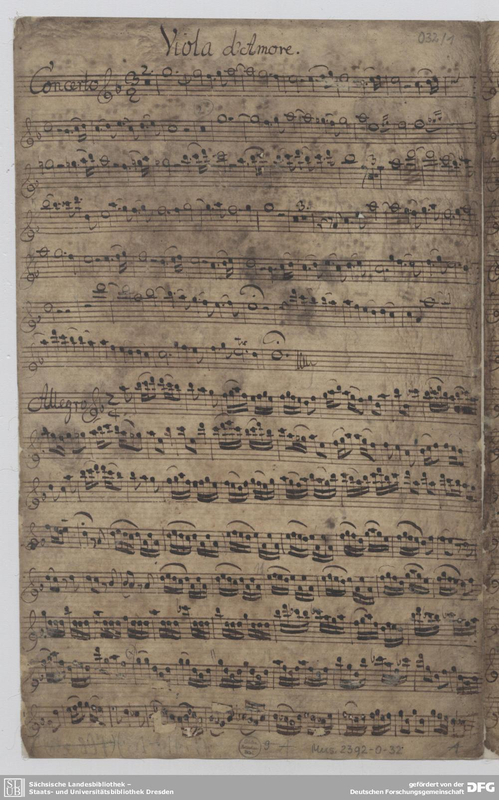 Viola d'Amore.
Concerto
Allegro
Mus 2392-0-32
1
SLUB
Sächsische Landesbibliothek –
Staats- und Universitätsbibliothek Dresden
gefördert von der
Deutschen Forschungsgemeinschaft
DFG